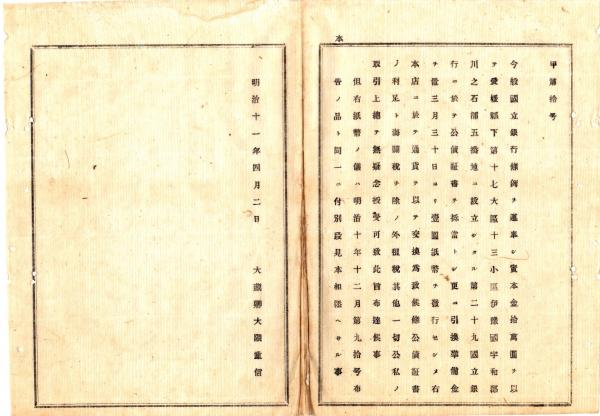 本
甲第拾号
今般国立銀行條例ヲ遵奉シ資本金拾萬圓ヲ以
テ愛媛縣下第十七大區十三小區伊豫國宇和郡
川之石浦五番地ニ設立シタル第二十九國立銀
行ニ於テ公債証書ヲ抵當トシ更ニ引換準備金
ヲ置三月三十日ヨリ壹圓紙幣ヲ發行セシメ右
本店ニ於テ通貨ヲ以テ交換為致候條公債証書
ノ利足ト海關税ヲ除ノ外租税其他一切公私ノ
取引上總テ無疑念授受可致此旨布達候事
但右紙幣ノ儀ハ明治十年十二月第九拾号布
告ノ品ト同一ニ付別段見本相添ヘサル事
明治十一年四月二日
大藏卿大隈重信